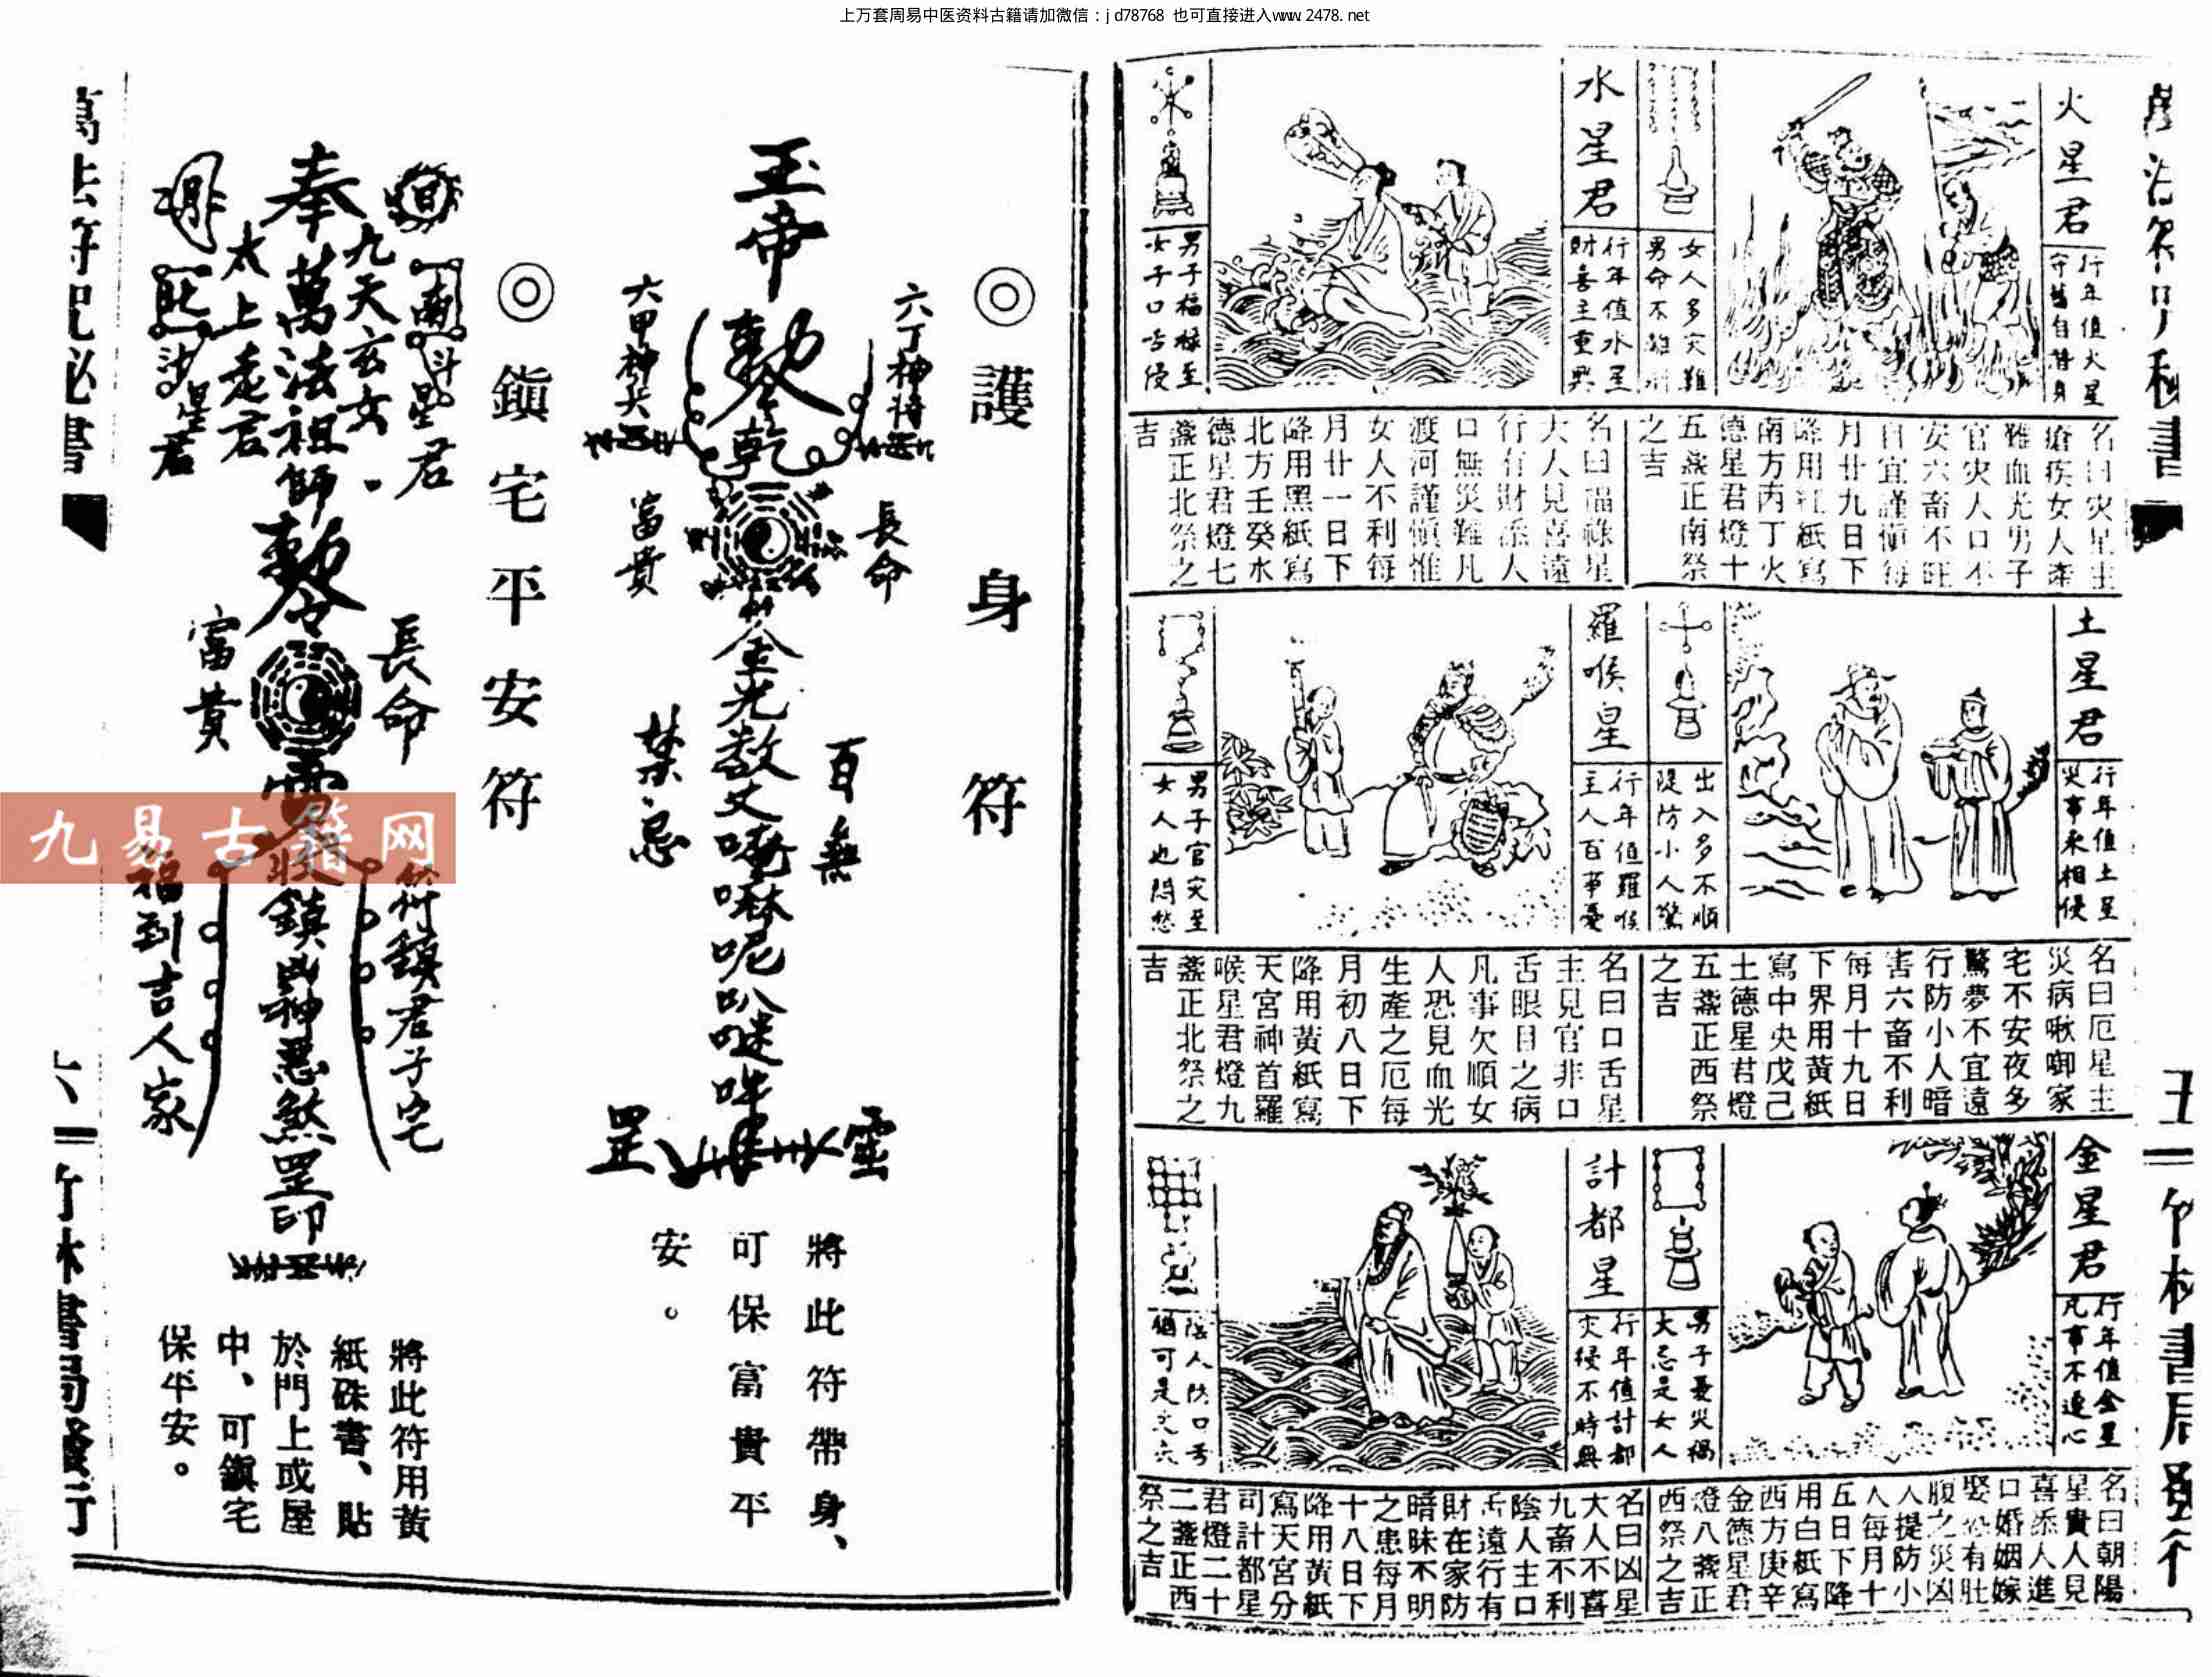 上万套周易中医资料古籍请加微信：jd78768 也可直接进入www.2478.net
火星君
行年值火星
守舊自甘身
女人多灾難
男命不
名曰灾星主
瘡疾女人產
難血光男子
官灾人口不
安六畜不旺
自宜謹慎每
月廿九日下
降用紅紙寫
南方丙丁火
德星君燈十
五盞正南祭
之吉
水星君
行年值水星
財喜主重興
男子福祿至
女子口舌侵
名曰福祿星
大人見喜遠
行有財添人
口無災難凡
渡河謹慎惟
女人不利每
月廿一日下
降用黑紙寫
北方壬癸水
德星君燈七
盞正北祭之
吉
土星君
行年值土星
災事來相侵
出入多不順
隄防小人驚
名曰厄星主
災病啾唧家
宅不安夜多
驚夢不宜遠
行防小人暗
害六畜不利
每月十九日
下界用黃紙
寫中央戊己
土德星君燈
五盞正西祭
之吉
羅喉星
行年值羅喉
主人百事憂
男子官灾至
女人也悶愁
名曰口舌星
主見官非口
舌眼目之病
凡事欠順女
人恐見血光
生產之厄每
月初八日下
降用黃紙寫
天宮神首羅
喉星君燈九
盞正北祭之
吉
金星君
行年值金星
凡事不遂心
男子憂災禍
大忌是女人
名曰朝陽
星貴人見
喜添人進
口婚姻嫁
娶必有肚
腹之災凶
人提防小
人每月十
五日下降
用白紙寫
西方庚辛
金德星君
燈八盞正
西祭之吉
計都星
行年值計都
灾侵不時興
陰人防口舌
可是
名曰凶星
大人不喜
九畜不利
陰人主口
舌遠行有
財在家防
暗昧不明
之患每月
十八日下
降用黃紙
寫天宮分
司計都星
君燈二十
二盞正西
祭之吉
竹林書局發行
◎護身符
玉帝
敕令乾
六丁神將
六甲神兵
長命
富貴
百無
禁忌
金光數丈
罡
靈
將此符帶身、
可保富貴平
安。
◎鎮宅平安符
奉
萬法祖師
敕令
九天玄女
太上老君
南斗星君
北斗星君
長命
富貴
鎮凶神惡煞罡印
符鎮君子宅
福到吉人家
將此符用黃
紙硃書、貼
於門上或屋
中、可鎮宅
保平安。
萬法符咒祕書
六
竹林書局發行
九易古籍网